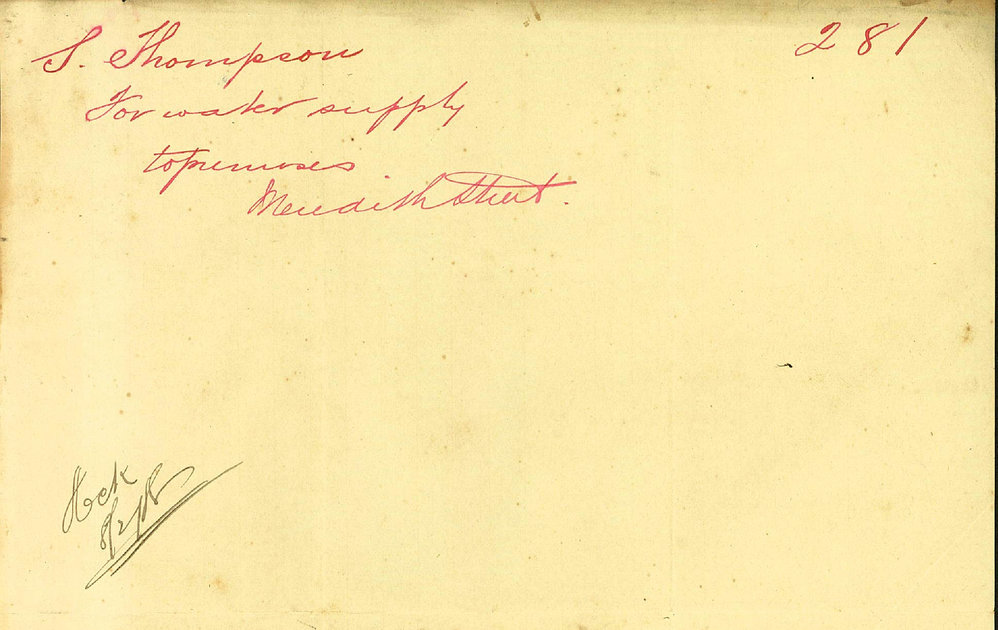 S. Thompson
281
For water supply
to premises
Meredith Street.
Ack
8/2/18